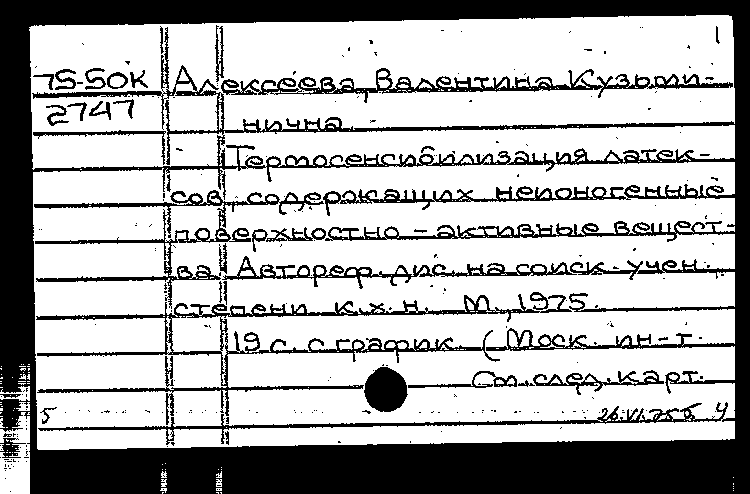 1
75-50К Алексеева, Валентина Кузьми-
2747 нична.
Термосенсибилизация латек-
сов, содержащих неионогенные
поверхностно-активные вещест-
ва. Автореф. дис. на соиск. учен.
степени к.х.н. М., 1975.
19 с. с график. (Моск. ин-т.
См. след. карт.
5 26.VI.75